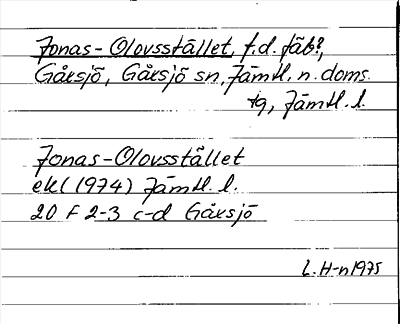 Jonas-Olovsstället, f.d. fäb?,
Gåxsjö, Gåxsjö sn, Jämtl. n. doms.
tg, Jämtl. l.
Jonas-Olovsstället
ek (1974) Jämtl. l.
20 F 2-3 c-d Gåxsjö
L. H-n 1975